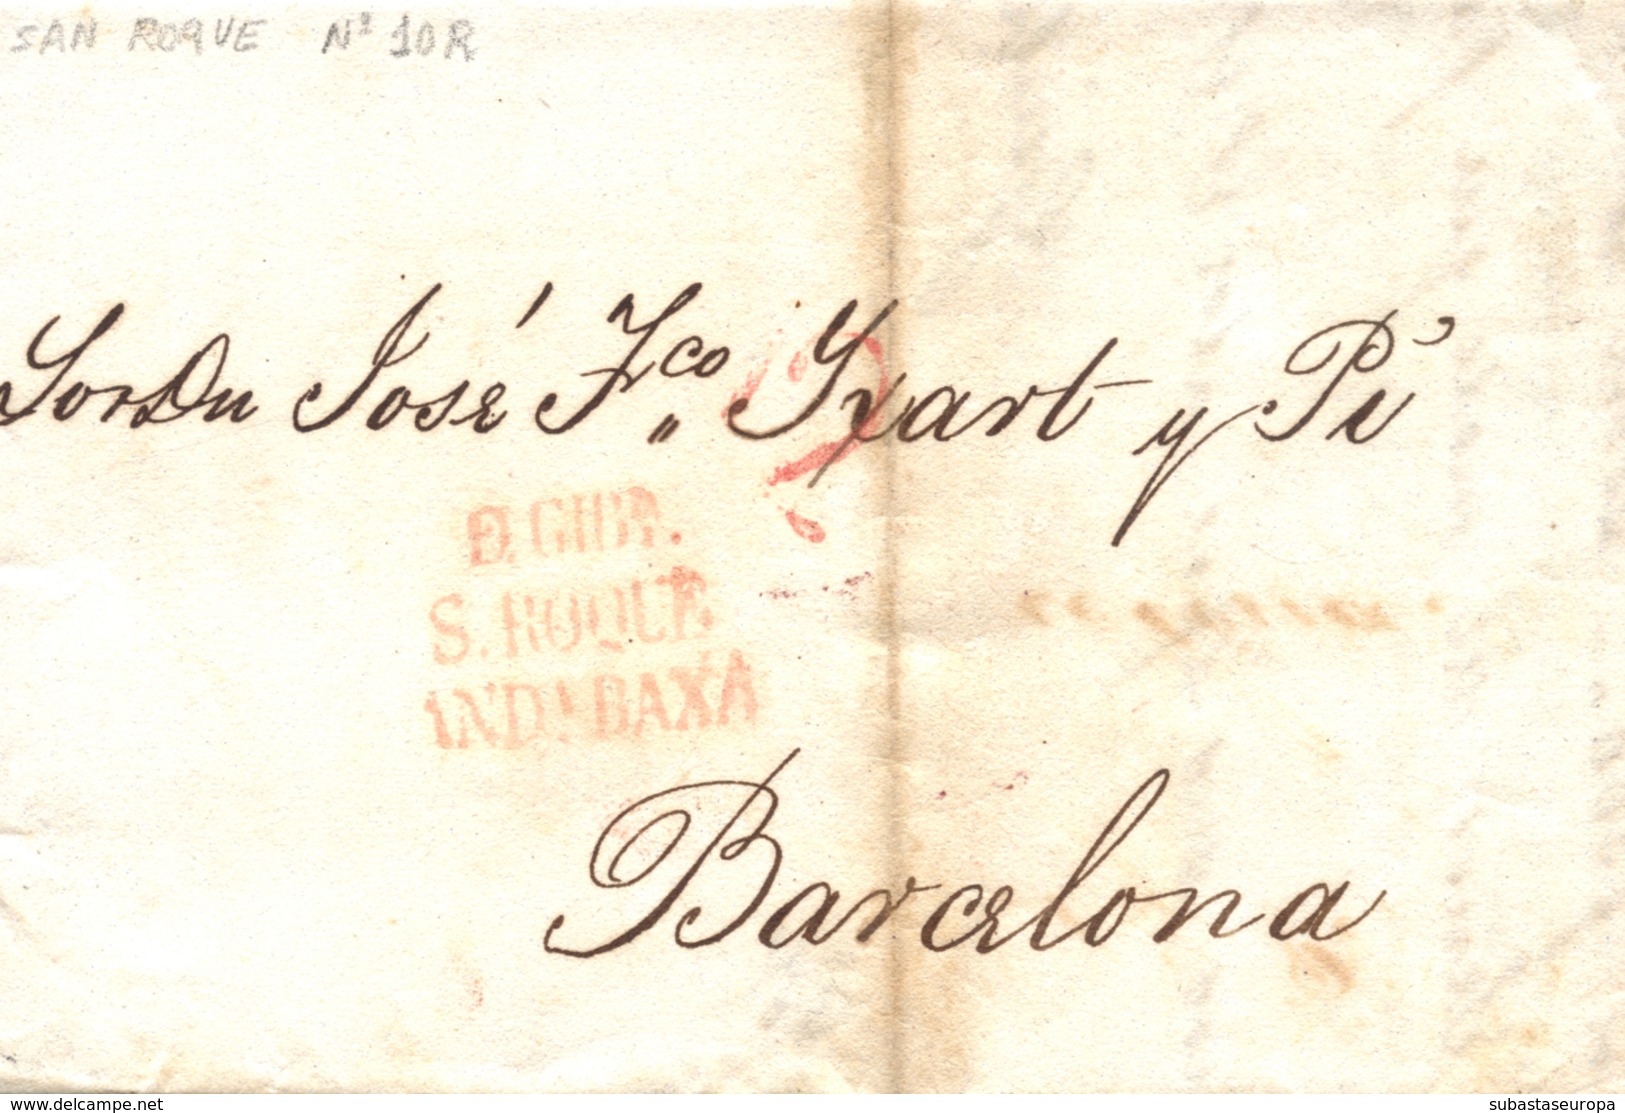 SAN ROQUE Nº 10R
Sor Dn José Fco. Yxart y Pi
D. GIBR.
S. ROQUE
ANDA BAXA
Barcelona
www.delcampe.net
subastaseuropa